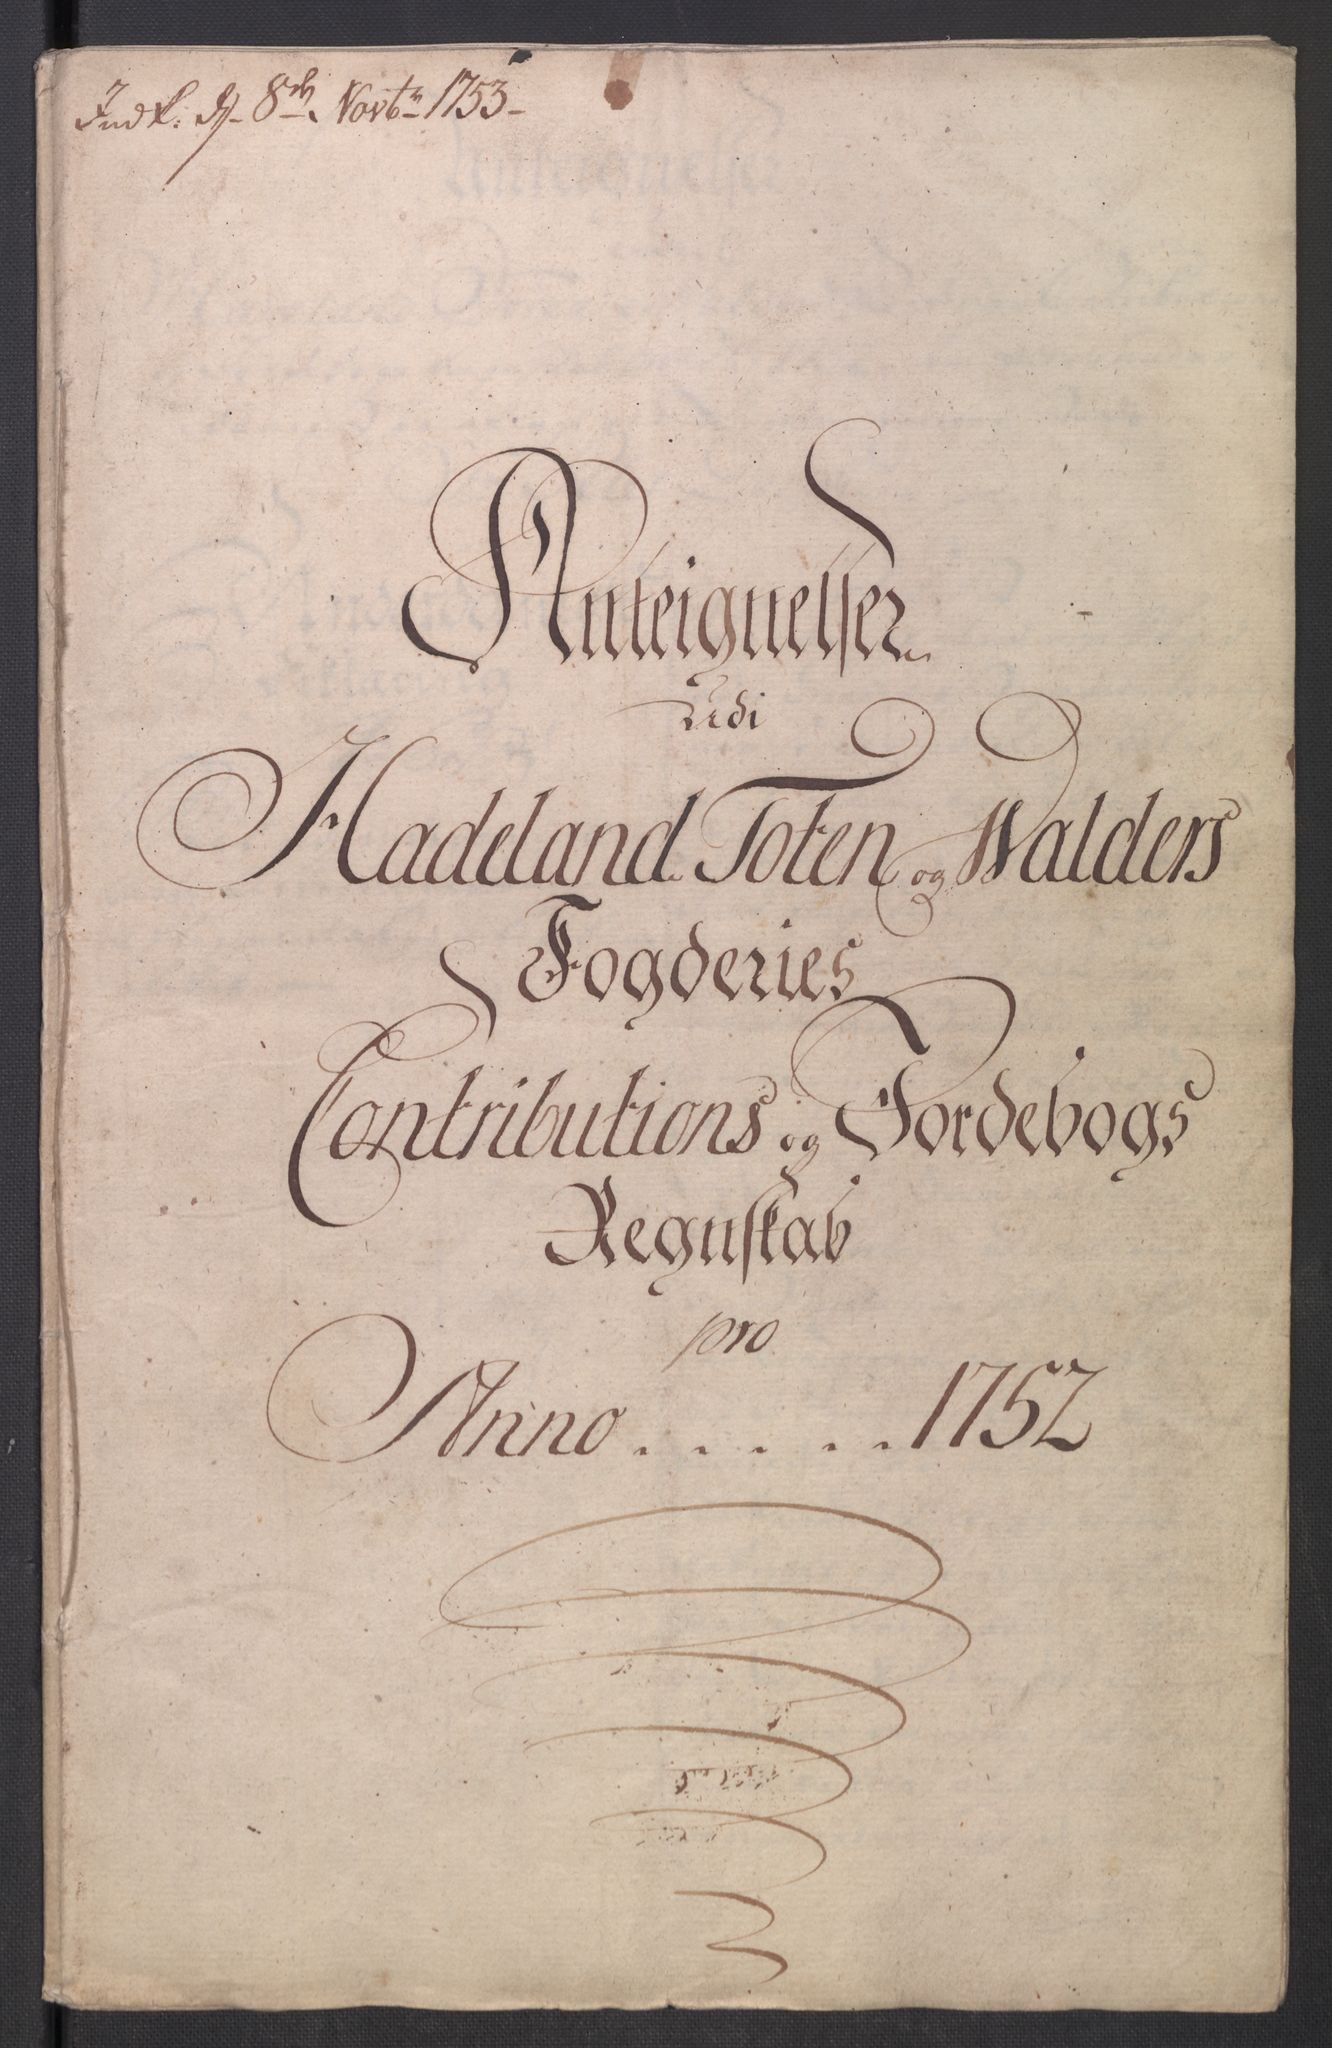 Indk: d. 8de Novbr 1753
Anteignelser
udi
Hadeland Toten og Walders
Fogderies
Contributions og Jordebogs
Regnskab
pro
Anno . . . . . 1752